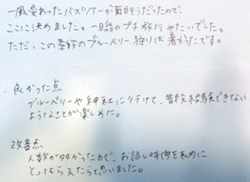 一風変わったバスツアーが面白そうだったので、
ここに決めました。一日店のプチ旅行みたいでした。
ただ、この季節のブルーベリー狩りは暑そうです。
・良かった点
ブルーベリーや神社に行けて、普段体験できない
ようなことが楽しめた。
改善点
人数が多かったので、お話し時間を長めに
とってもらえたらと思いました。